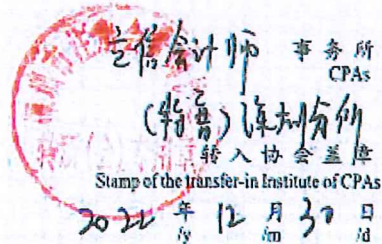 立信会计师 事务所
CPAs
(特普)深圳分所
转入协会盖章
Stamp of the transfer-in Institute of CPAs
2022 年 12 月 30 日
/y /m /d